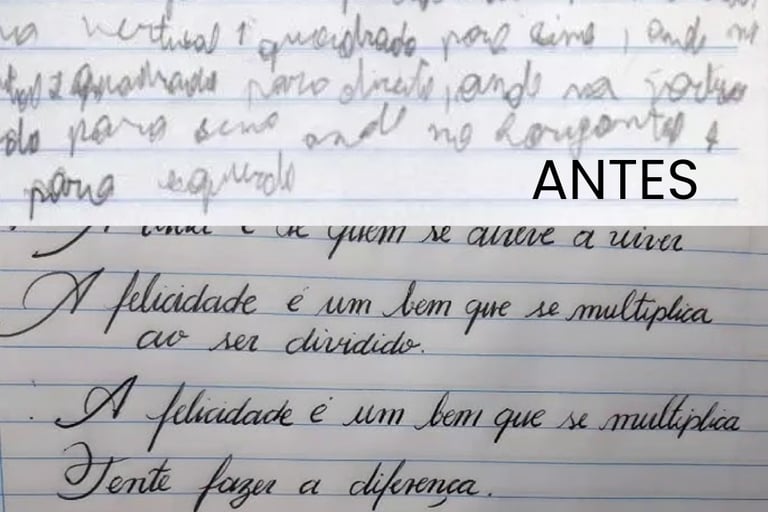 vertical 1 quadrado para cima, ande
quadrado para direita, ande na
para cima ande na horizontal
para esquerda
ANTES
é de quem se atreve a viver
A felicidade é um bem que se multiplica
ao ser dividido.
A felicidade é um bem que se multiplica
Tente fazer a diferença.